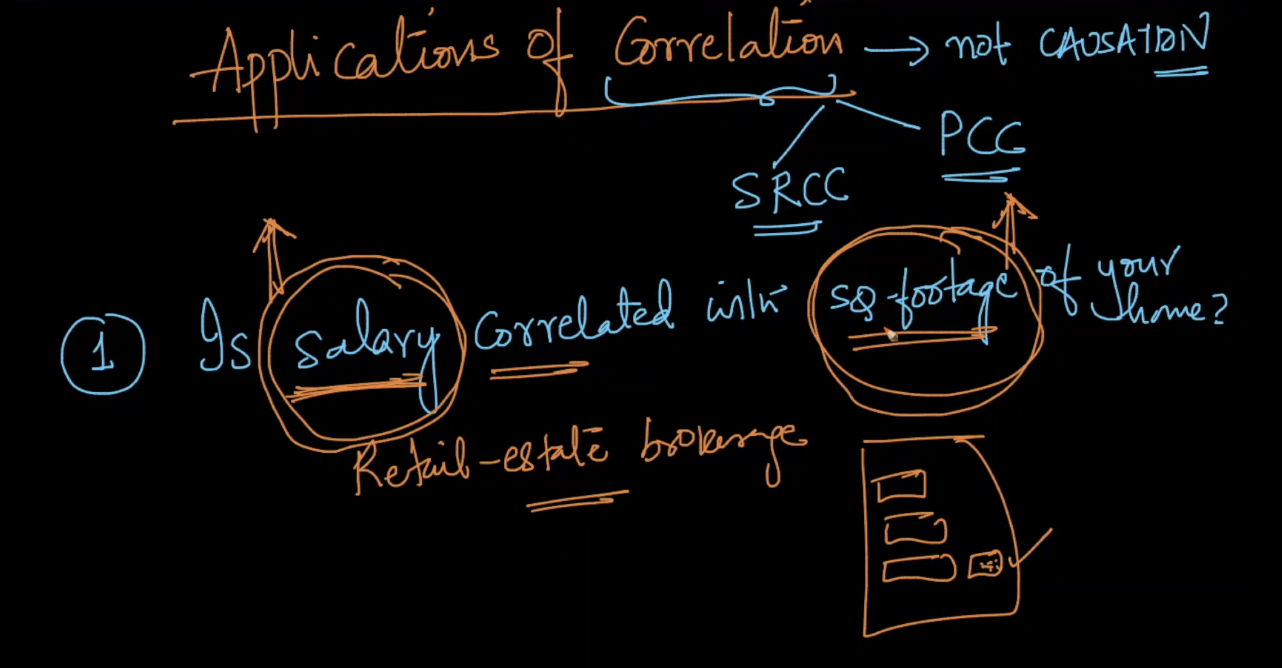 Applications of Correlation → not CAUSATION
PCC
SRCC
1 Is salary correlated with sq-footage of your home?
Retail-estate brokerage